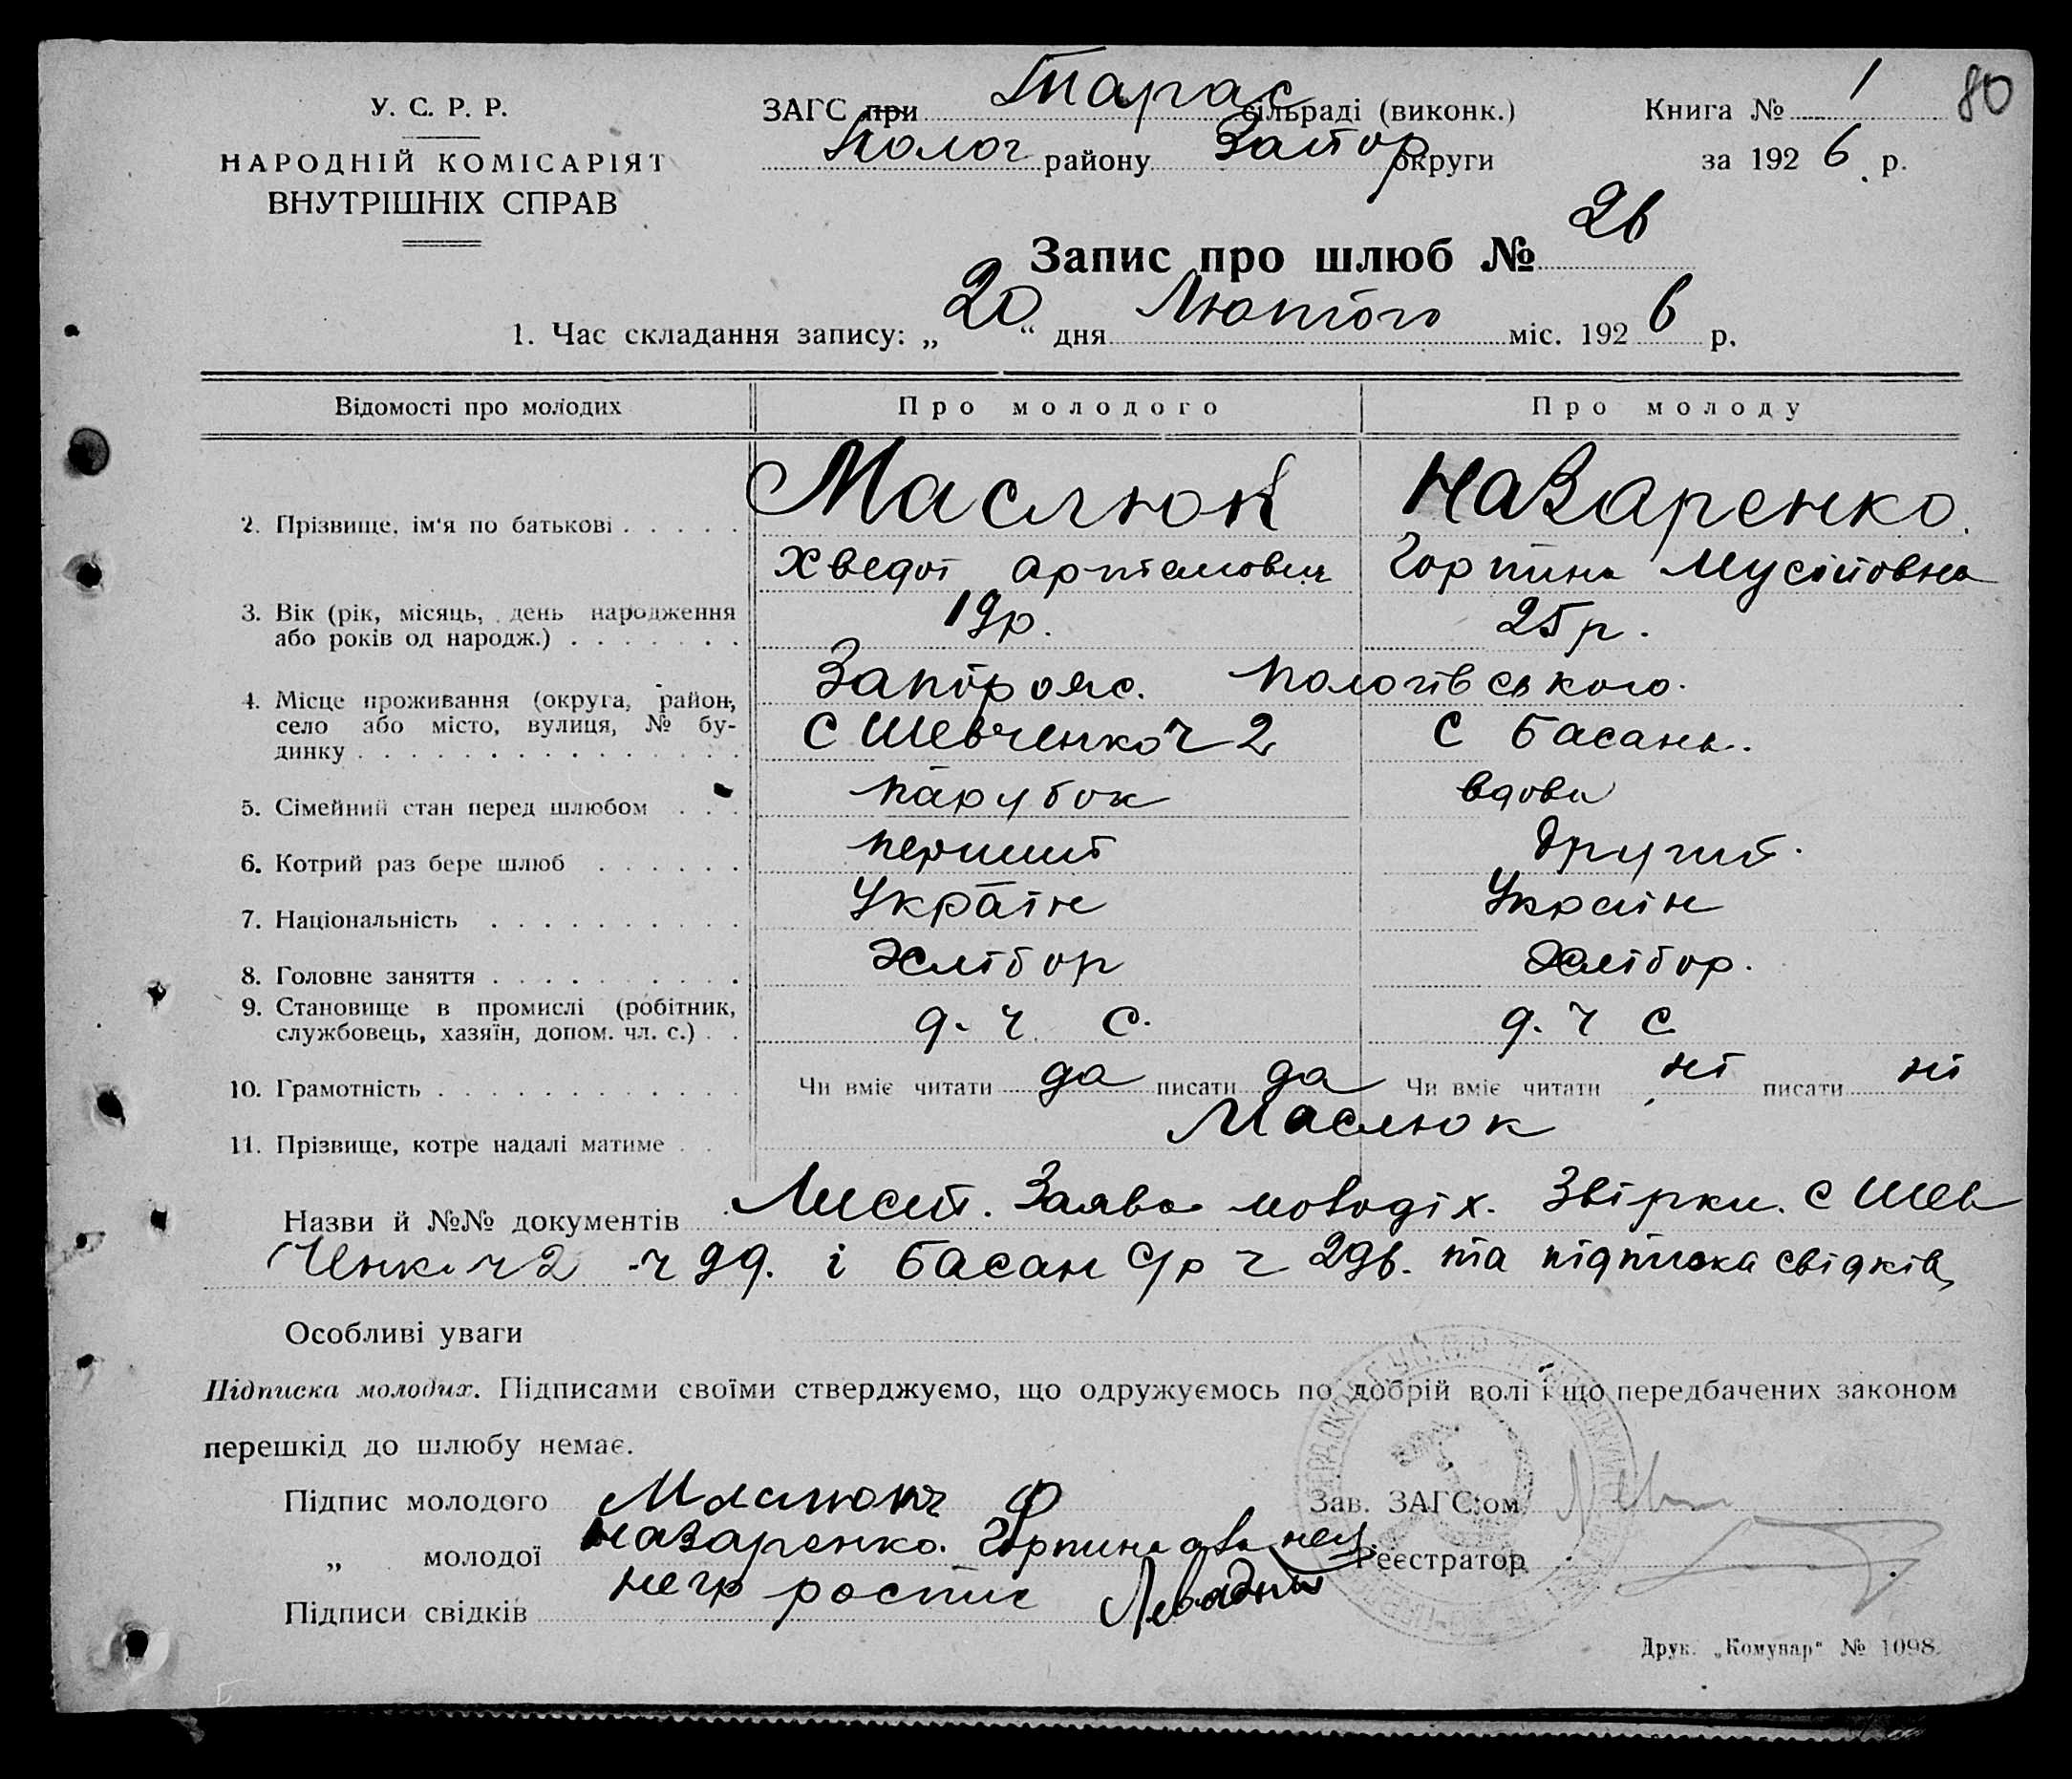 У. С. Р. Р.
НАРОДНІЙ КОМІСАРІЯТ
ВНУТРІШНІХ СПРАВ
ЗАГС при Тарас сільраді (виконк.)
Полог району Запор округи
Книга № 1
80
за 192 6 р.
Запис про шлюб № 26
1. Час складання запису: „ 20 “ дня Лютого міс. 192 6 р.
Відомості про молодих Про молодого Про молоду
2. Прізвище, ім'я по батькові Маслюк Назаренко
Хведот Артемович Горпина Мусійовна
3. Вік (рік, місяць, день народження
або років од народж.) 19р. 25р.
4. Місце проживання (округа, район,
село або місто, вулиця, № бу-
динку
Запоріж. Пологівського.
С Шевченко ч 2 С Басань.
5. Сімейний стан перед шлюбом парубок вдова
6. Котрий раз бере шлюб перший другий.
7. Національність Україн Україн
8. Головне заняття хлібор хлібор.
9. Становище в промислі (робітник,
службовець, хазяїн, допом. чл. с.) д. ч с. д. ч с
10. Грамотність Чи вміє читати да писати да Чи вміє читати ні писати ні
11. Прізвище, котре надалі матиме Маслюк
Назви й №№ документів Лист. Заява молодіх. Звірки. С Шев
ченк ч 2 ч 99. і Басан с/р ч та підписка свідків
Особливі уваги
Підписка молодих. Підписами своїми стверджуємо, що одружуємось по добрій волі і що передбачених законом
перешкід до шлюбу немає.
Підпис молодого Маслюк Ф
„ молодої Назаренко. Горпина а за неї
негр роспис Левадний
Підписи свідків
Зав. ЗАГС'ом
Реєстратор
Друк. „Комунар“ № 1098.